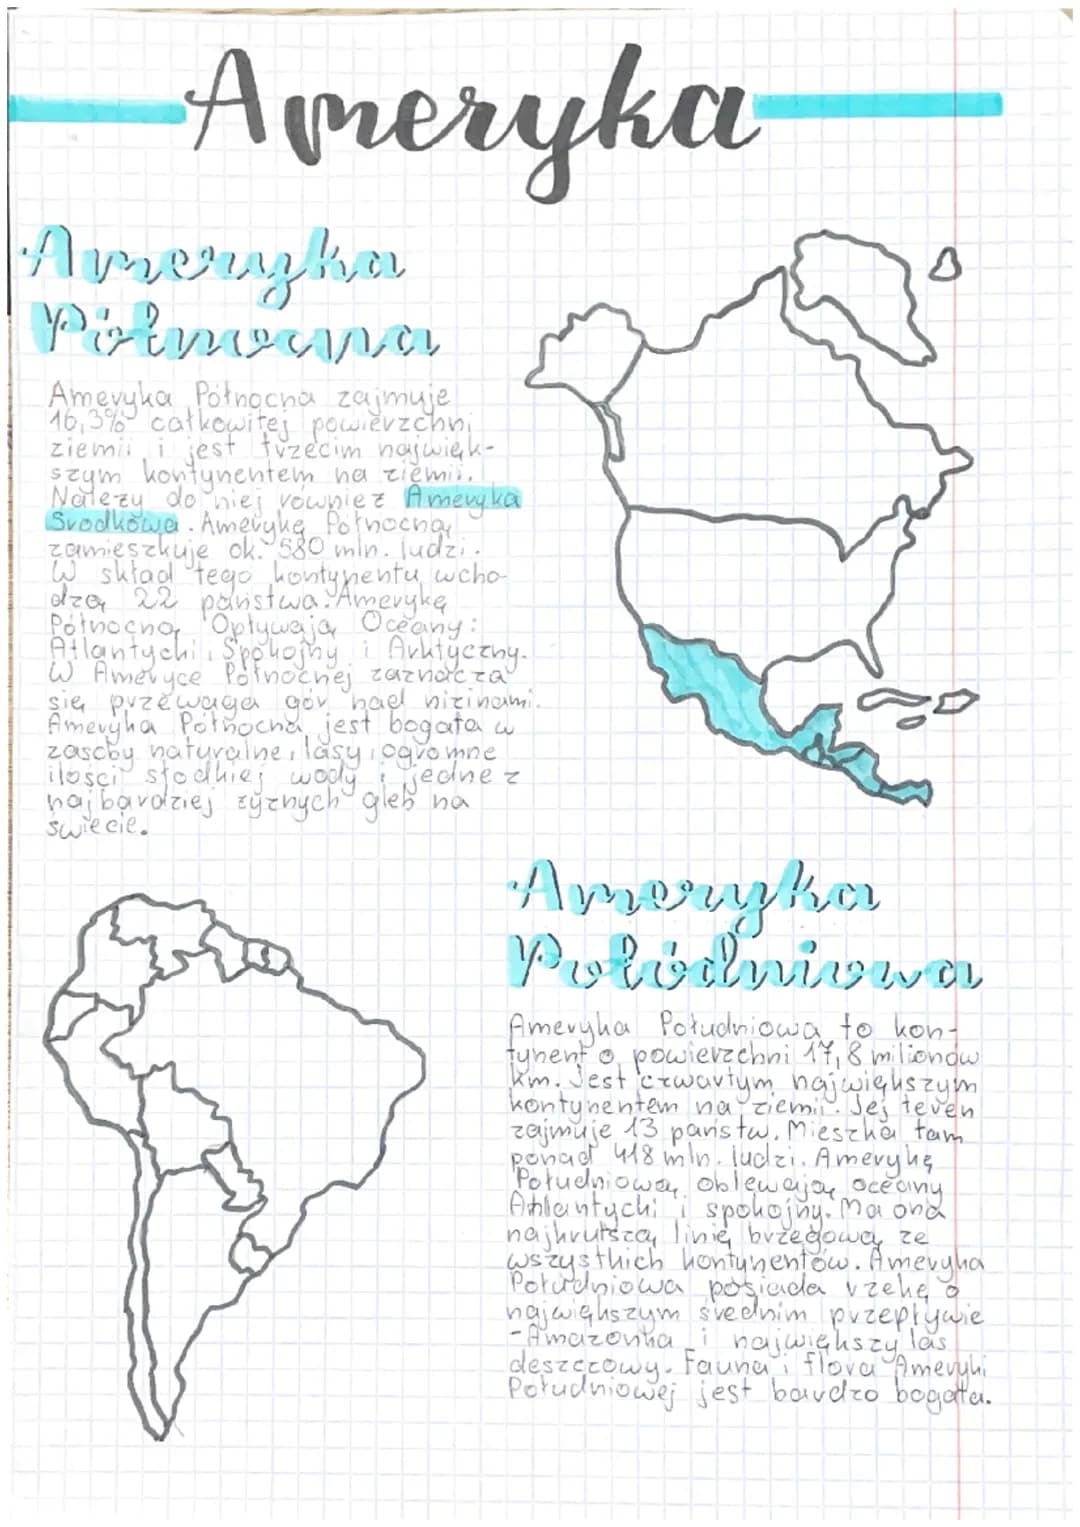 Ameryka
Ameryka
Północna
Ameryka Północna zajmuje
16,3% całkowitej powierzchni
ziemii i jest trzecim najwięk-
szym kontynentem na ziemii.
Należy do niej również Ameryka
Środkowa. Amerykę Północną
zamieszkuje ok. 580 mln. ludzi.
W skład tego kontynentu wcho-
dzą 22 państwa. Amerykę
Północną Opływają Oceany:
Atlantycki, Spokojny i Arktyczny.
W Ameryce Północnej zaznacza
się przewaga gór nad nizinami.
Ameryka Północna jest bogata w
zasoby naturalne, lasy, ogromne
ilości słodkiej wody i jedne z
najbardziej żyznych gleb na
świecie.
Ameryka
Połódniowa
Ameryka Południowa to kon-
tynent o powierzchni 17,8 milionów
km. Jest czwartym największym
kontynentem na ziemii. Jej teren
zajmuje 13 państw. Mieszka tam
ponad 418 mln. ludzi. Amerykę
Południową oblewają oceany
Atlantycki i spokojny. Ma ona
najkrótszą linię brzegową ze
wszystkich kontynentów. Ameryka
Południowa posiada rzekę o
największym średnim przepływie
-Amazonka i największy las
deszczowy. Fauna i flora Ameryki
Południowej jest bardzo bogata.